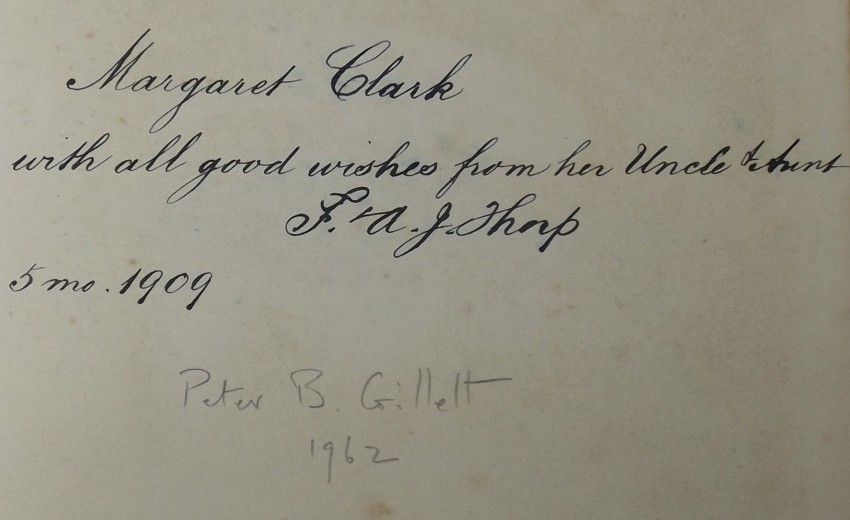 Margaret Clark
with all good wishes from her Uncle & Aunt
F. & A. J. Thorp
5 mo. 1909
Peter B. Gillett
1962